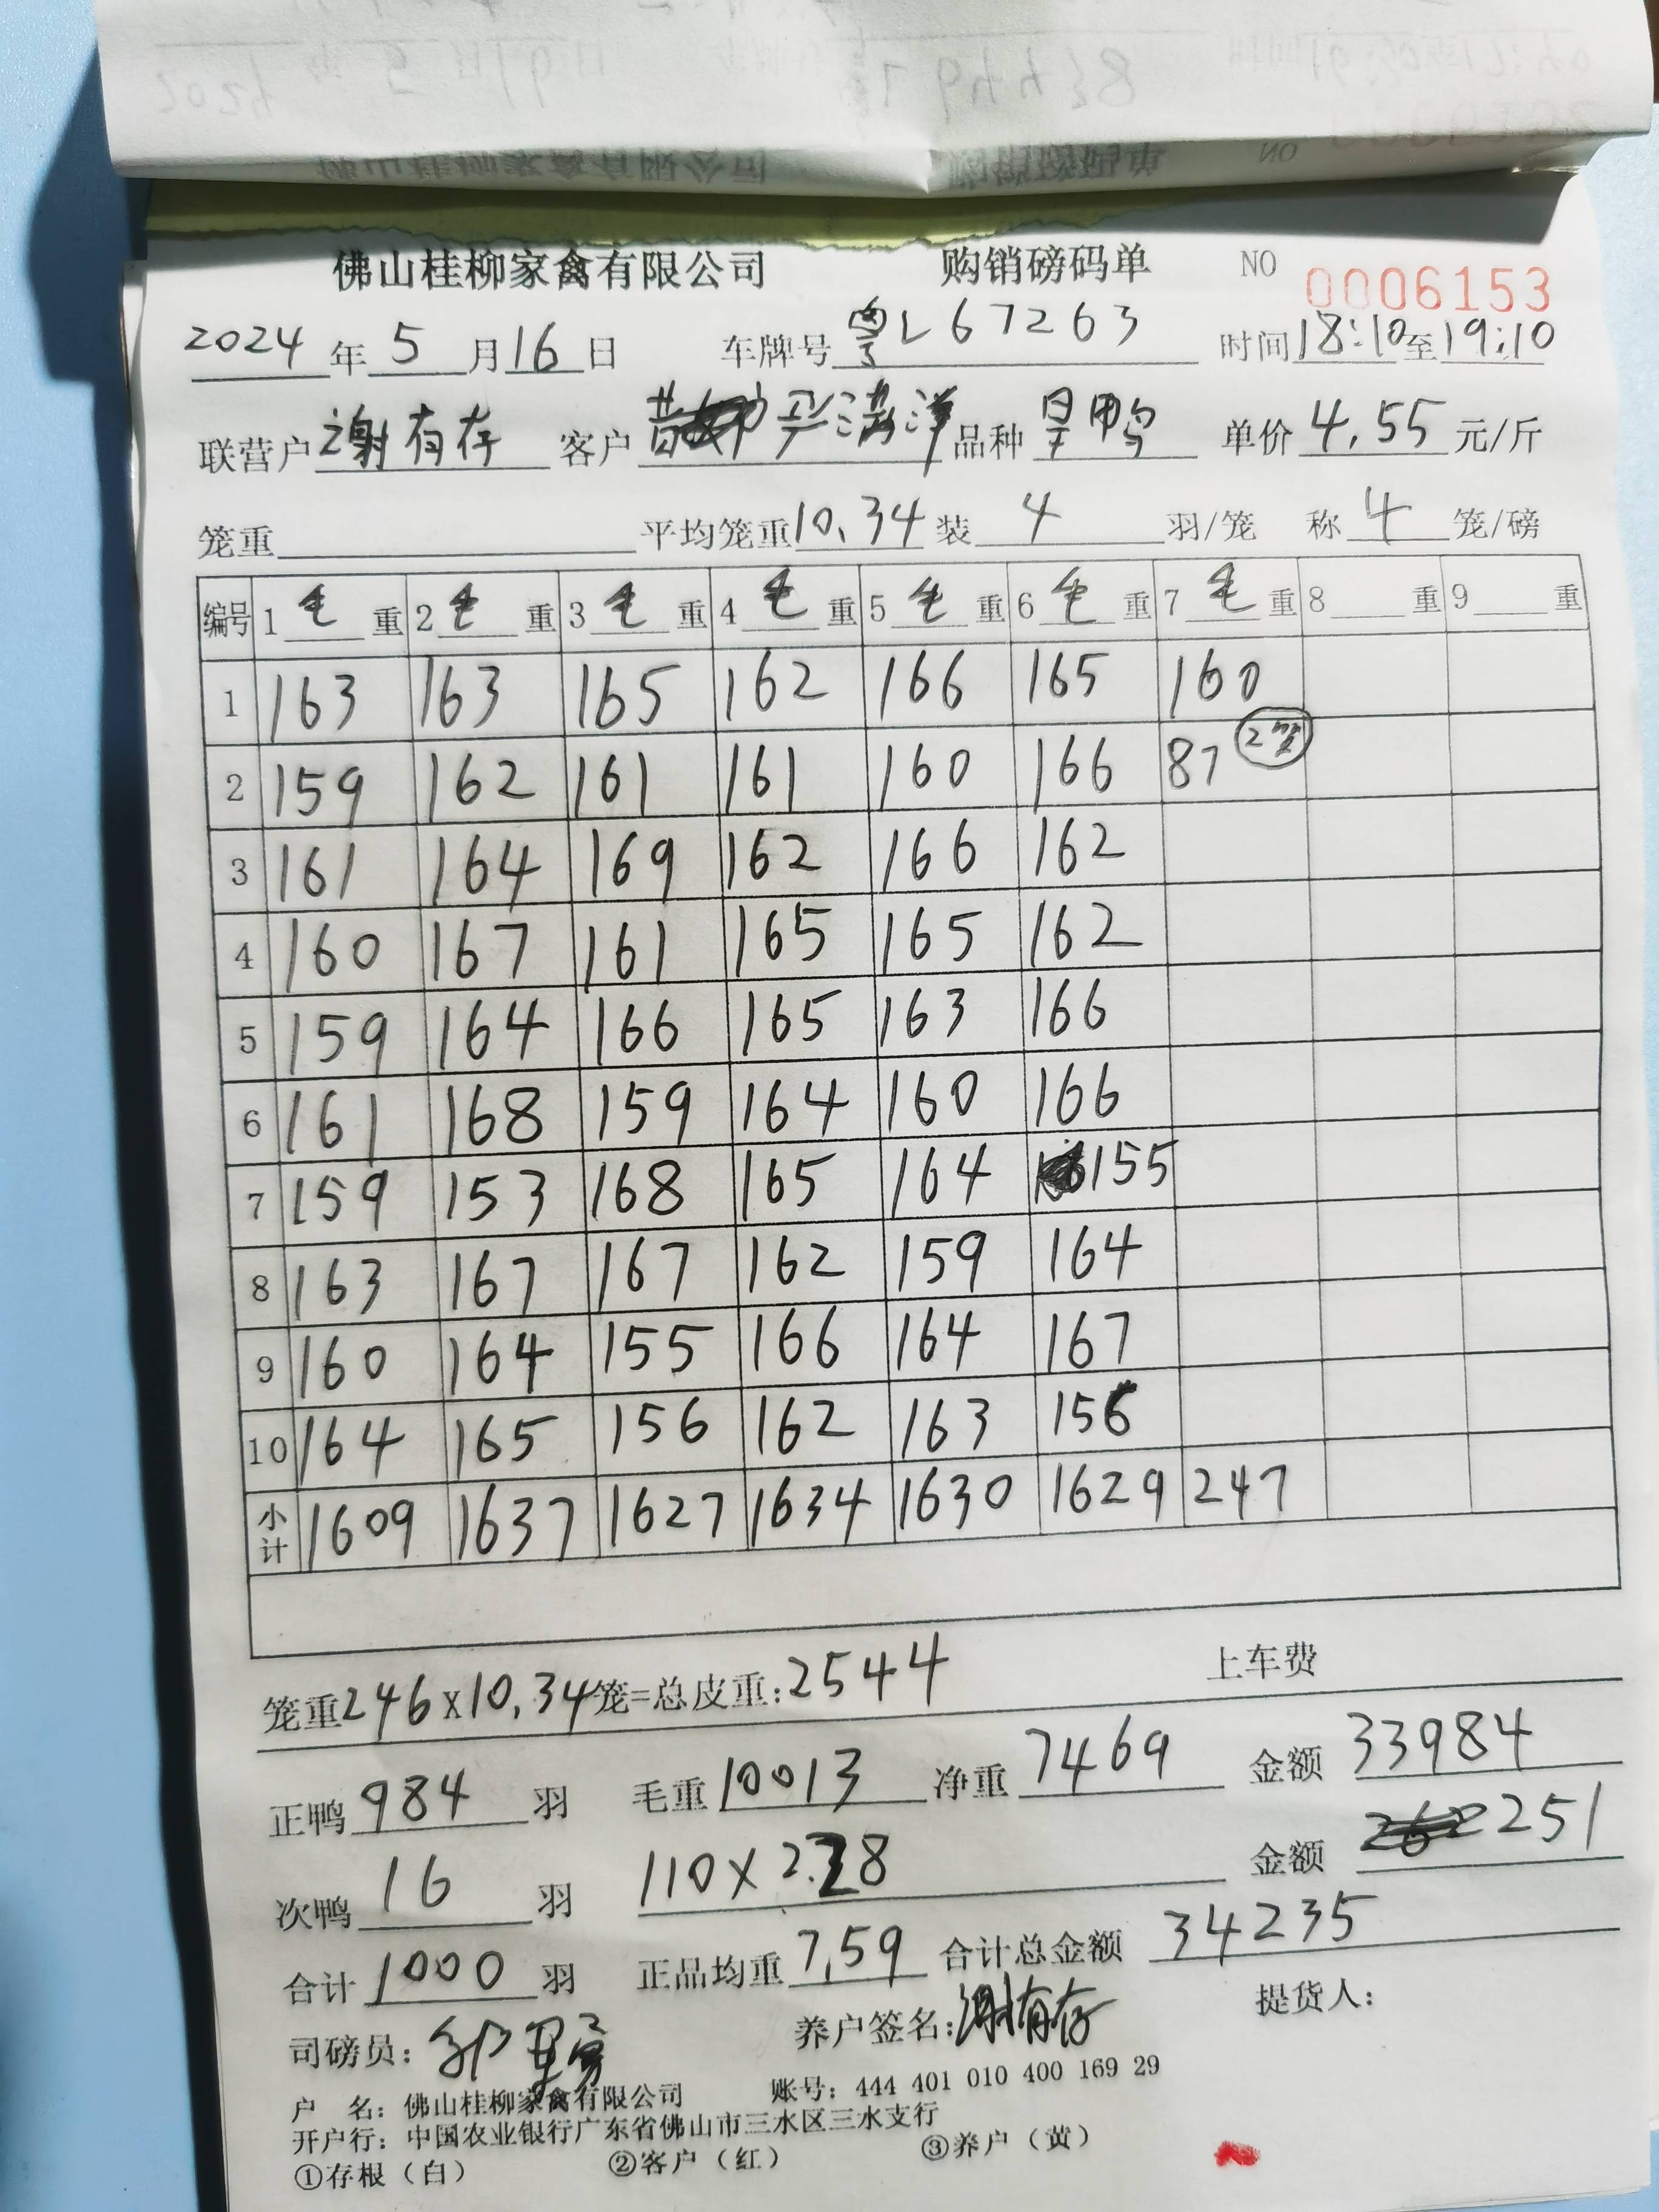 佛山桂柳家禽有限公司 购销磅码单 NO 0006153
2024年5月16日 车牌号 粤L67263 时间18:10至19:10
联营户 谢有存 客户 满洋 品种 鸭 单价 4.55 元/斤
笼重 平均笼重10.34 装 4 羽/笼 称 4 笼/磅
编号 1 毛 重 2 毛 重 3 毛 重 4 毛 重 5 毛 重 6 毛 重 7 毛 重 8 重 9 重
1 163 163 165 162 166 165 160
2 159 162 161 161 160 166 87 2笼
3 161 164 169 162 166 162
4 160 167 161 165 165 162
5 159 164 166 165 163 166
6 161 168 159 164 160 166
7 159 153 168 165 164 155
8 163 167 167 162 159 164
9 160 164 155 166 164 167
10 164 165 156 162 163 156
小计 1609 1637 1627 1634 1630 1629 247
笼重246x10.34笼=总皮重:2544 上车费
正鸭 984 羽 毛重 10013 净重 7469 金额 33984
次鸭 16 羽 110x2.28 金额 251
合计 1000 羽 正品均重 7.59 合计总金额 34235
司磅员: 养户签名:谢有存 提货人:
户 名: 佛山桂柳家禽有限公司 账号: 444 401 010 400 169 29
开户行: 中国农业银行广东省佛山市三水区三水支行
①存根(白) ②客户(红) ③养户(黄)